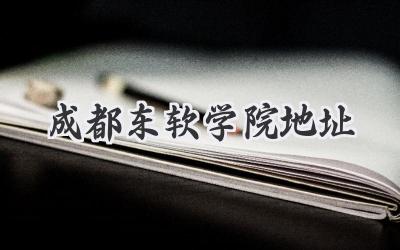 成都东软学院地址